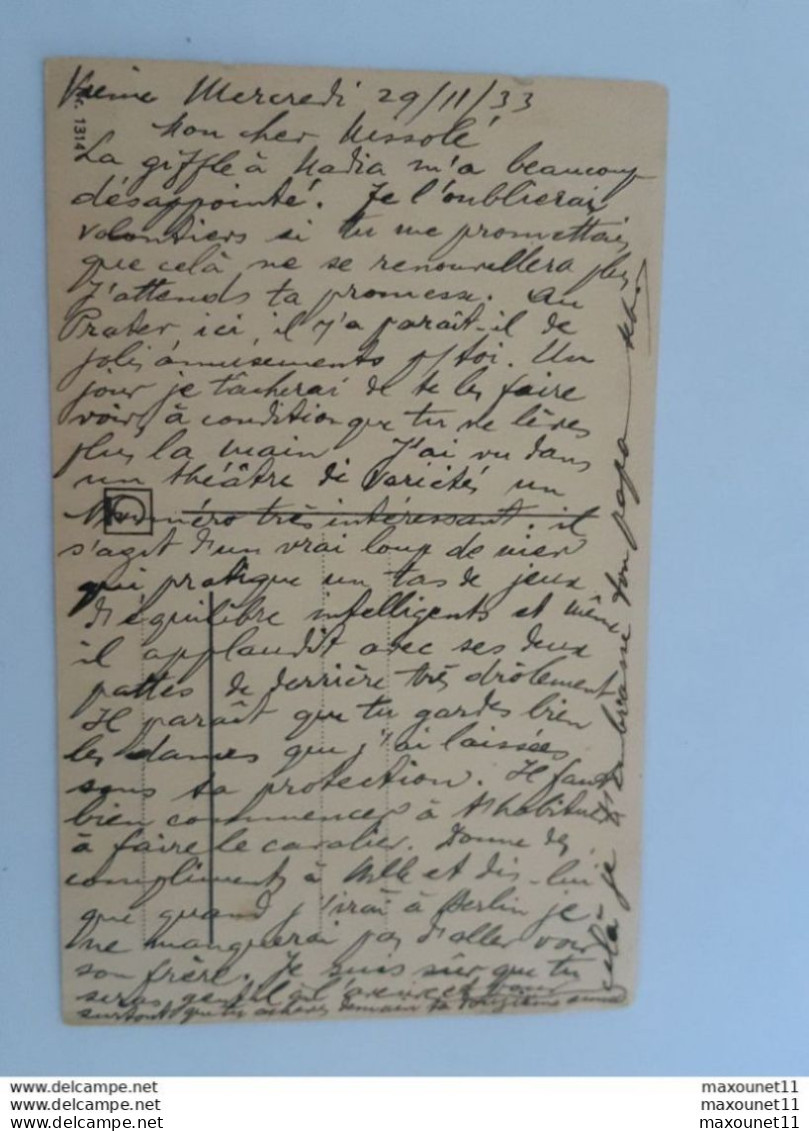 Vienne Mercredi 29/11/33
Nr. 1314
Mon cher
La giffle à Nadia m'a beaucoup
désappointé. Je l'oublierai
volontiers si tu me promettais
que celà ne se renouvellera plus
J'attends ta promesse. Au
Prater ici, il y'a paraît-il de
jolis amusements p/toi. Un
jour je tâcherai de te les faire
voir, à condition que tu ne lèves
plus la main. J'ai vu dans
un théâtre de Variétés un
Numéro très intéressant. il
s'agit d'un vrai loup de mer
qui pratique un tas de jeux
d'équilibre intelligents et même
il applaudit avec ses deux
pattes de derrière très drôlement
Il paraît que tu gardes bien
les dames que j'ai laissées
sous ta protection. Il faut
bien commencer à t'habituer
à faire le cavalier. Donne des
compliments à Mlle et dis-lui
que quand j'irai à Berlin je
ne manquerai pas d'aller voir
son frère. Je suis sûr que tu
seras gentil à l'avenir et
surtout que tu achèves demain ta
celà je t'embrasse ton papa
maxounet11
maxounet11
maxounet11
maxounet11
maxounet11
maxounet11